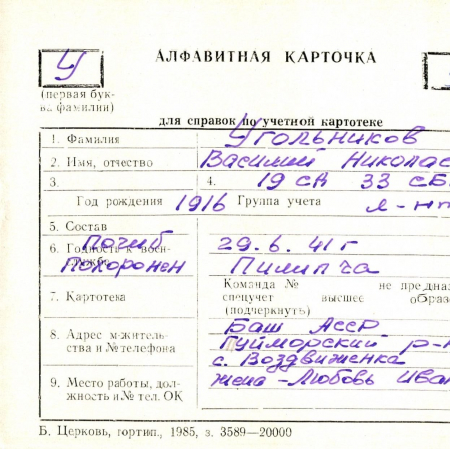 У
АЛФАВИТНАЯ КАРТОЧКА
(первая бук-
ва фамилии)
для справок по учетной картотеке
1. Фамилия Угольников
2. Имя, отчество Василий Николае
3. 4. 19 сд 33 сб
Год рождения 1916 Группа учета л-нт
5. Состав
Погиб 29.6.41 г
6. Годность к воен-
службе
Похоронен Пилипча
Команда № не предна
7. Картотека спецучет высшее образ
(подчеркнуть)
Баш АССР
8. Адрес м-житель-
ства и № телефона
Гуйморский р-н
с. Воздвиженка
9. Место работы, дол-
жность и № тел. ОК
жена - Любовь Иван
Б. Церковь, гортип., 1985, з. 3589—20000